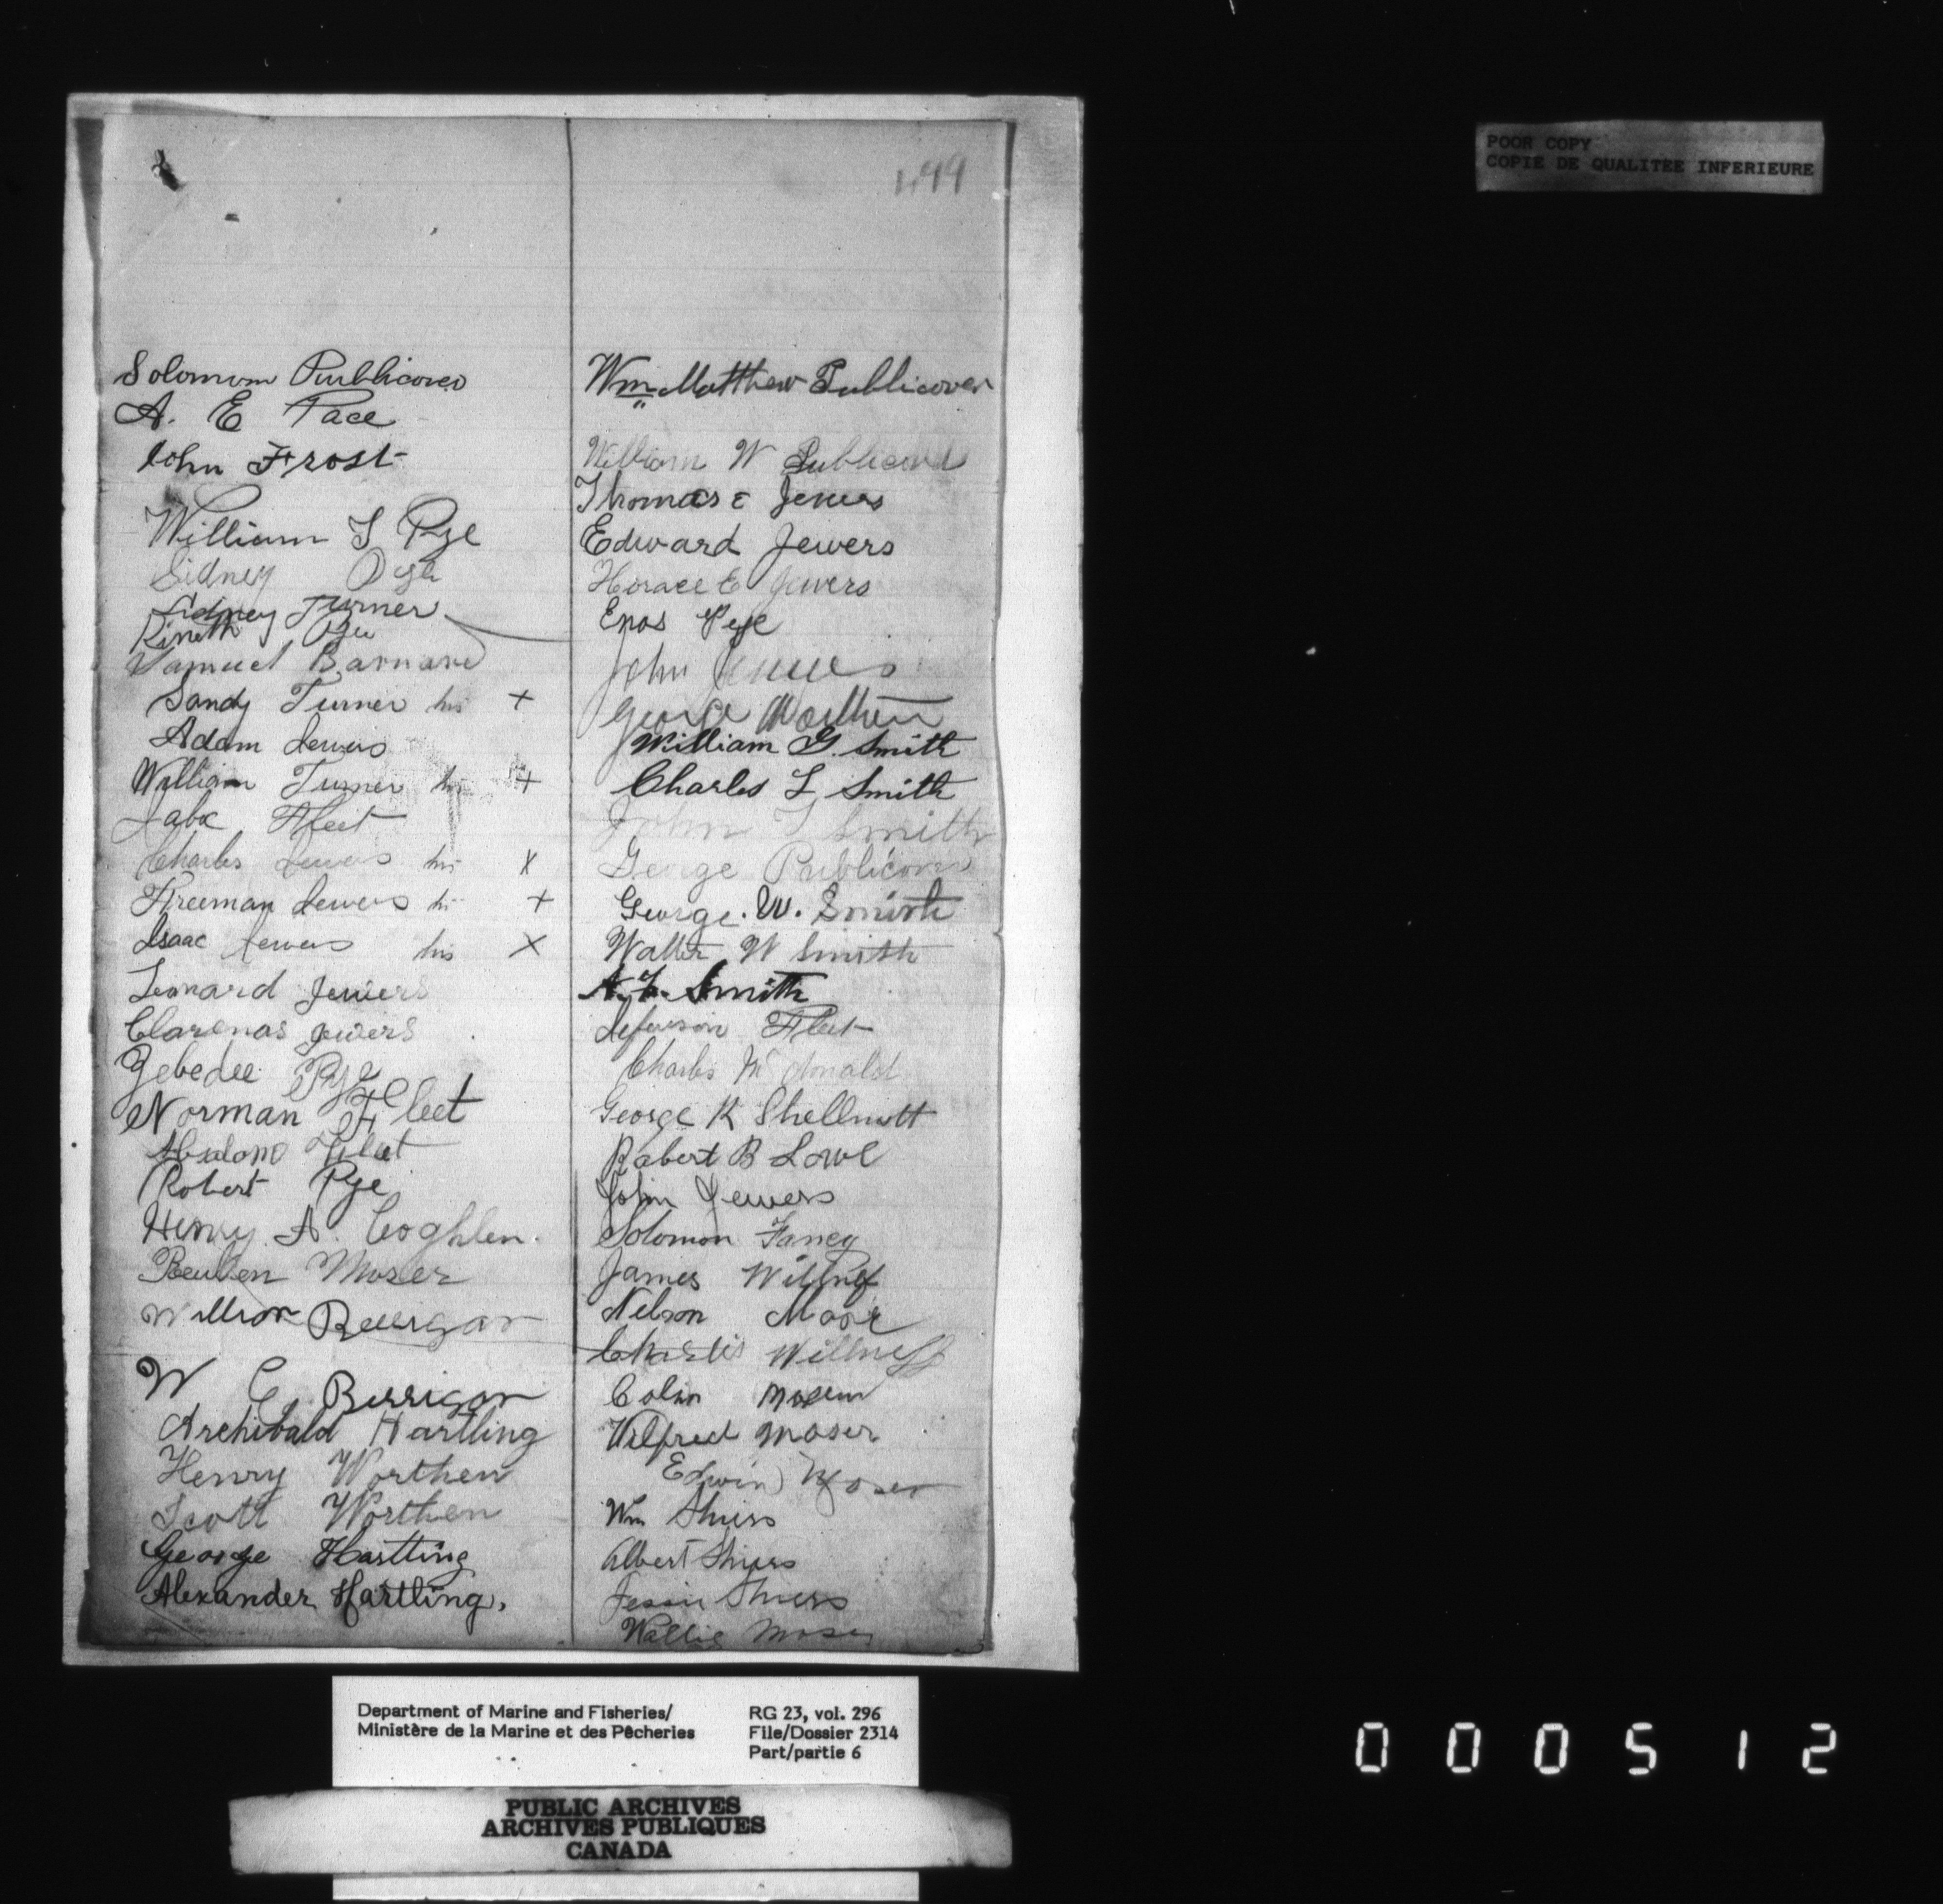 Solomon Publicover
A. E Pace
John Frost
William S Pye
Sidney Pye
Sidney Turner
Kineth Pye
Samuel Barnard
Sandy Turner his +
Adam Jewers
William Turner his +
Jabe Fleet
Charles Jewers his X
Freeman Jewers his +
Isaac Jewers his X
Leonard Jewers
Clarenas Jewers
Zebedee Pye
Norman Fleet
Absalom Fleet
Robert Pye
Henry A. Coghlen.
Reuben Moser
William
W C Berrigan
Archibald Hartling
Henry Worthen
Scott Worthen
George Hartling
Alexander Hartling.
Wm Matthew Publicover
William W Publicover
Thomas E Jewers
Edward Jewers
Horace E Jewers
Enos Pye
John Jewers
George Worthen
William G. Smith
Charles L Smith
John Smith
George Publicover
George. W. Smith
Walter W Smith
A. Smith
Fleet
Charles McDonald
George K Shellnutt
Robert B Lowe
John Jewers
Solomon Fancy
James Willneff
Nelson Moor
Charles Willneff
Colin Moser
Wilfred Moser
Edwin Moser
Wm Shiers
Albert Shiers
Jessie Shiers
Wallie Moser
POOR COPY
COPIE DE QUALITEE INFERIEURE
Department of Marine and Fisheries/
Ministère de la Marine et des Pêcheries
RG 23, vol. 296
File/Dossier 2314
Part/partie 6
PUBLIC ARCHIVES
ARCHIVES PUBLIQUES
CANADA
000512